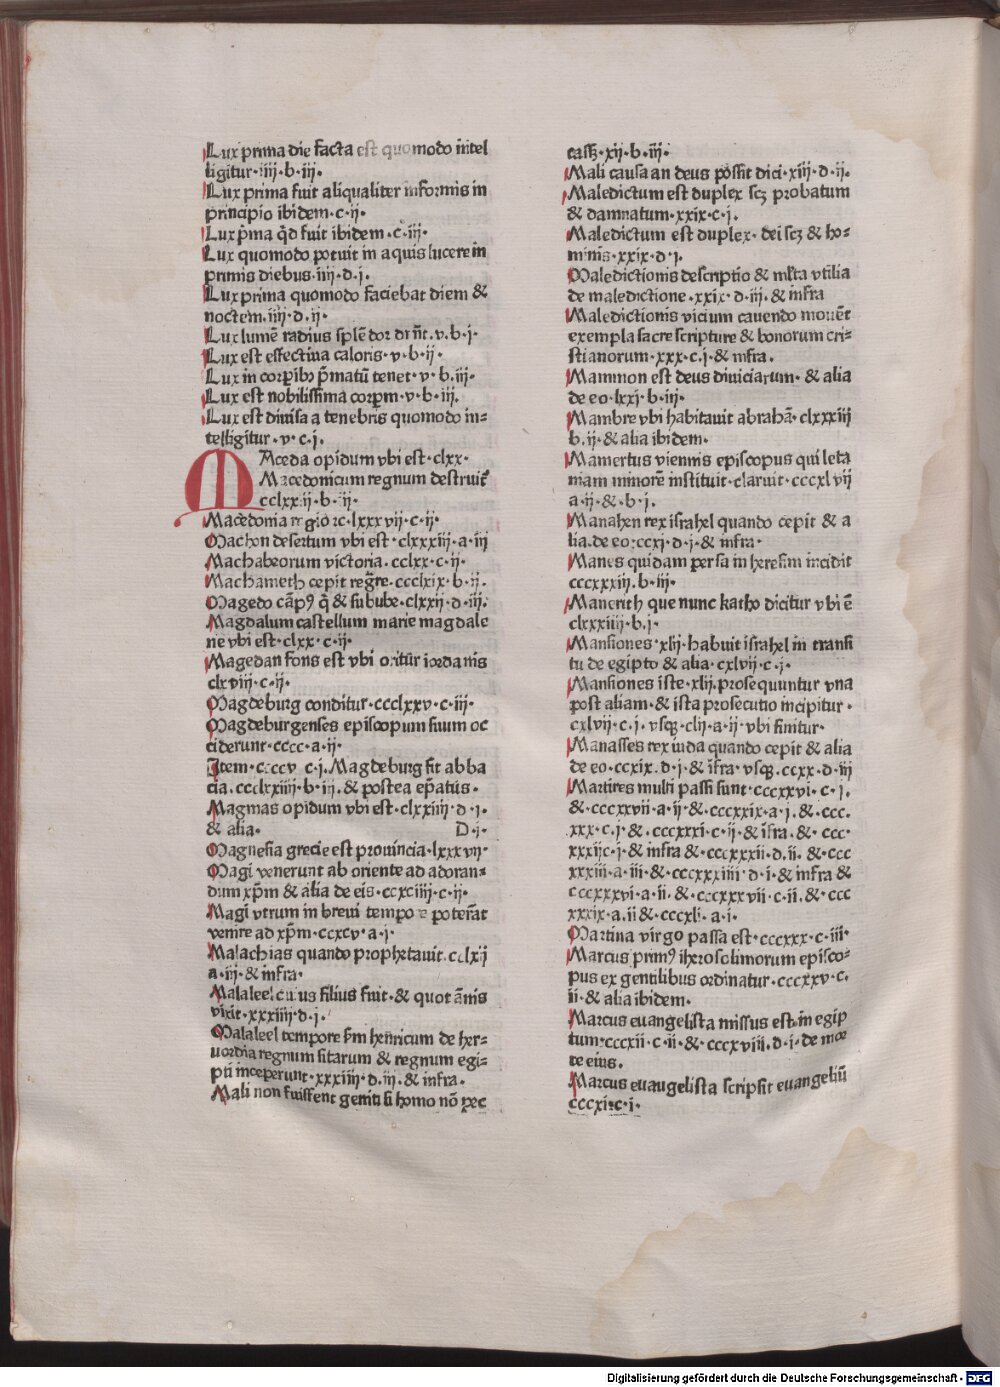 Lux prima die facta est quomodo intel
ligitur·iiij·b·iij·
Lux prima fuit aliqualiter informis in
principio ibidem·c·ij·
Lux p̄ma q̄d fuit ibidem·c·iij·
Lux quomodo potuit in aquis lucere in
primis diebus·iiij·d·j·
Lux prima quomodo faciebat diem &
noctem·iiij·d·ij·
Lux lumē radius splēdor dr̄nt·v·b·j·
Lux est effectiua caloris·v·b·ij·
Lux in corpībꝰ p̄matū tenet·v·b·iij·
Lux est nobilissima corpm·v·b·iij.
Lux est diuisa a tenebris quomodo in-
telligitur·v·c·j.
MAceda opidum vbi est·clxx·
Macedonicum regnum destruit̉
cclxxiij·b·ij·
Macedonia regio ·lxxxvij·c·ij·
Machon desertum vbi est·clxxxiij·a·iij
Machabeorum victoria.cclxx·c·ij·
Machameth cepit reg̅re.ccclxix·b·ij.
Magedo cāpꝰ q̄ & subube·clxxij·d·iij.
Magdalum castellum marie magdale
ne vbi est·clxx·c·ij·
Magedan fons est vbi oritur iordanis
clxviij·c·ij·
Magdeburg conditur·ccclxxv·c·iij·
Magdeburgenses episcopum suum oc
ciderunt·cccc·a·ij·
Item·ccccv c·j.Magdeburg fit abba
cia.ccclxiiij·b·iij.& postea ep̄atus·
Magmas opidum vbi est·clxxiiij·d·j·
& alia· D·j·
Magnesia grecie est prouincia·lxxxvij·
Magi venerunt ab oriente ad adoran-
dum xp̄m & alia de eis·ccxciiij·c·ij·
Magi vtrum in breui tempore poterāt
venire ad xp̄m·ccxcv·a·j·
Malachias quando prophetauit.cclxij
a·iij·& infra·
Malaleel cuius filius fuit·& quot ānis
vixit·xxxiiij·d·j·
Malaleel tempore scḋm henricum de her-
uordia regnum sitarum & regnum egi-
pti inceperunt·xxxiiij·d·iij·& infra·
Mali non fuissent geniti si homo nō pec
casset·xij·b·iij·
Mali causa an deus possit dici·xiij·d·ij.
Maledictum est duplex scz probatum
& damnatum·xxix·c·j.
Maledictum est duplex·dei scz & ho-
minis·xxix·d·j.
Maledictionis descriptio & ml̄ta vtilia
de maledictione·xxix·d·iij·& infra
Maledictionis vicium cauendo mouēt
exempla sacre scripture & bonorum cri-
stianorum·xxx·c·j·& infra.
Mammon est deus diuiciarum·& alia
de eo·lxxj·b·iij·
Mambre vbi habitauit abrahā·clxxxiij
b·ij·& alia ibidem·
Mamertus viennis episcopus qui leta
niam minorē instituit·claruit·cccxlvij
a·ij·&·b·j.
Manahen rex israhel quando cepit & a
lia.de eo:ccxj·d·j·& infra·
Manes quidam persa in heresim incidit
cccxxxiij.b·iij·
Manerith que nunc katho dicitur vbi ē
clxxxiiij·b·j·
Mansiones·xlij·habuit israhel in transi
tu de egipto & alia·cxlvij·c·j·
Mansiones iste·xlij.prosequuntur vna
post aliam·& ista prosecutio incipitur·
cxlvij·c·j.vsq̄·clij·a·ij·vbi finitur·
Manasses rex iuda quando cepit & alia
de eo·ccxix.d·j·& īfra·vsq̄.ccxx·d·iij
Martires multi passi sunt·cccxxvi·c·j.
&·cccxxvij·a·ij·&·cccxxix·a·j.&·ccc.
xxx·c.j·&.cccxxxi·c·ij·& īfra.&·ccc·
xxxij:c·j·& infra &·cccxxxii.d.ii.&·ccc
xxxiij·a·iij·&·cccxxxiiij·d·j·& infra &
cccxxxvi·a·ij.&·cccxxxvij·c·ij.&·ccc
xxxix·a.ij &·cccxli·a·j·
Martina virgo passa est·cccxxx·c·iij·
Marcus primꝰ iherosolimorum episco-
pus ex gentilibus ordinatur·cccxxv·c·
ij·& alia ibidem·
Marcus euangelista missus est in egip
tum·cccxij·c·ij·& cccxviij.d·j·de mor
te eius.
Marcus euangelista scripsit euangeliū
cccxi:c·j·
Digitalisierung gefördert durch die Deutsche Forschungsgemeinschaft - DFG